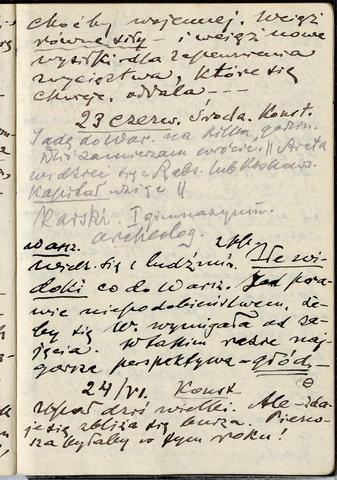 choćby wojennej. Wciąż
równe siły - i wciąż nowe
wysiłki dla zapewnienia
zwycięstwa, które się
chwieje, oddala ---
23 czerw. Środa. Konst.
Jadę do War. na kilka godzin.
Dziś zamierzam wrócić. ||
widzieć się z Rabs. lub
Kapitał ||
Karski. I gimnazjum.
archeolog.
Warsz.
widz. się z ludźmi. Złe wi-
doki co do Warsz. Jest pra-
wie niepodobieństwem, że-
by się W. wymigała od za-
jęcia. W takim razie naj-
gorsza perspektywa - głód,-
24/VI. Konst
Upał dziś wielki. Ale zda-
je się zbliża się burza. Pierw-
sza byłaby w tym roku!